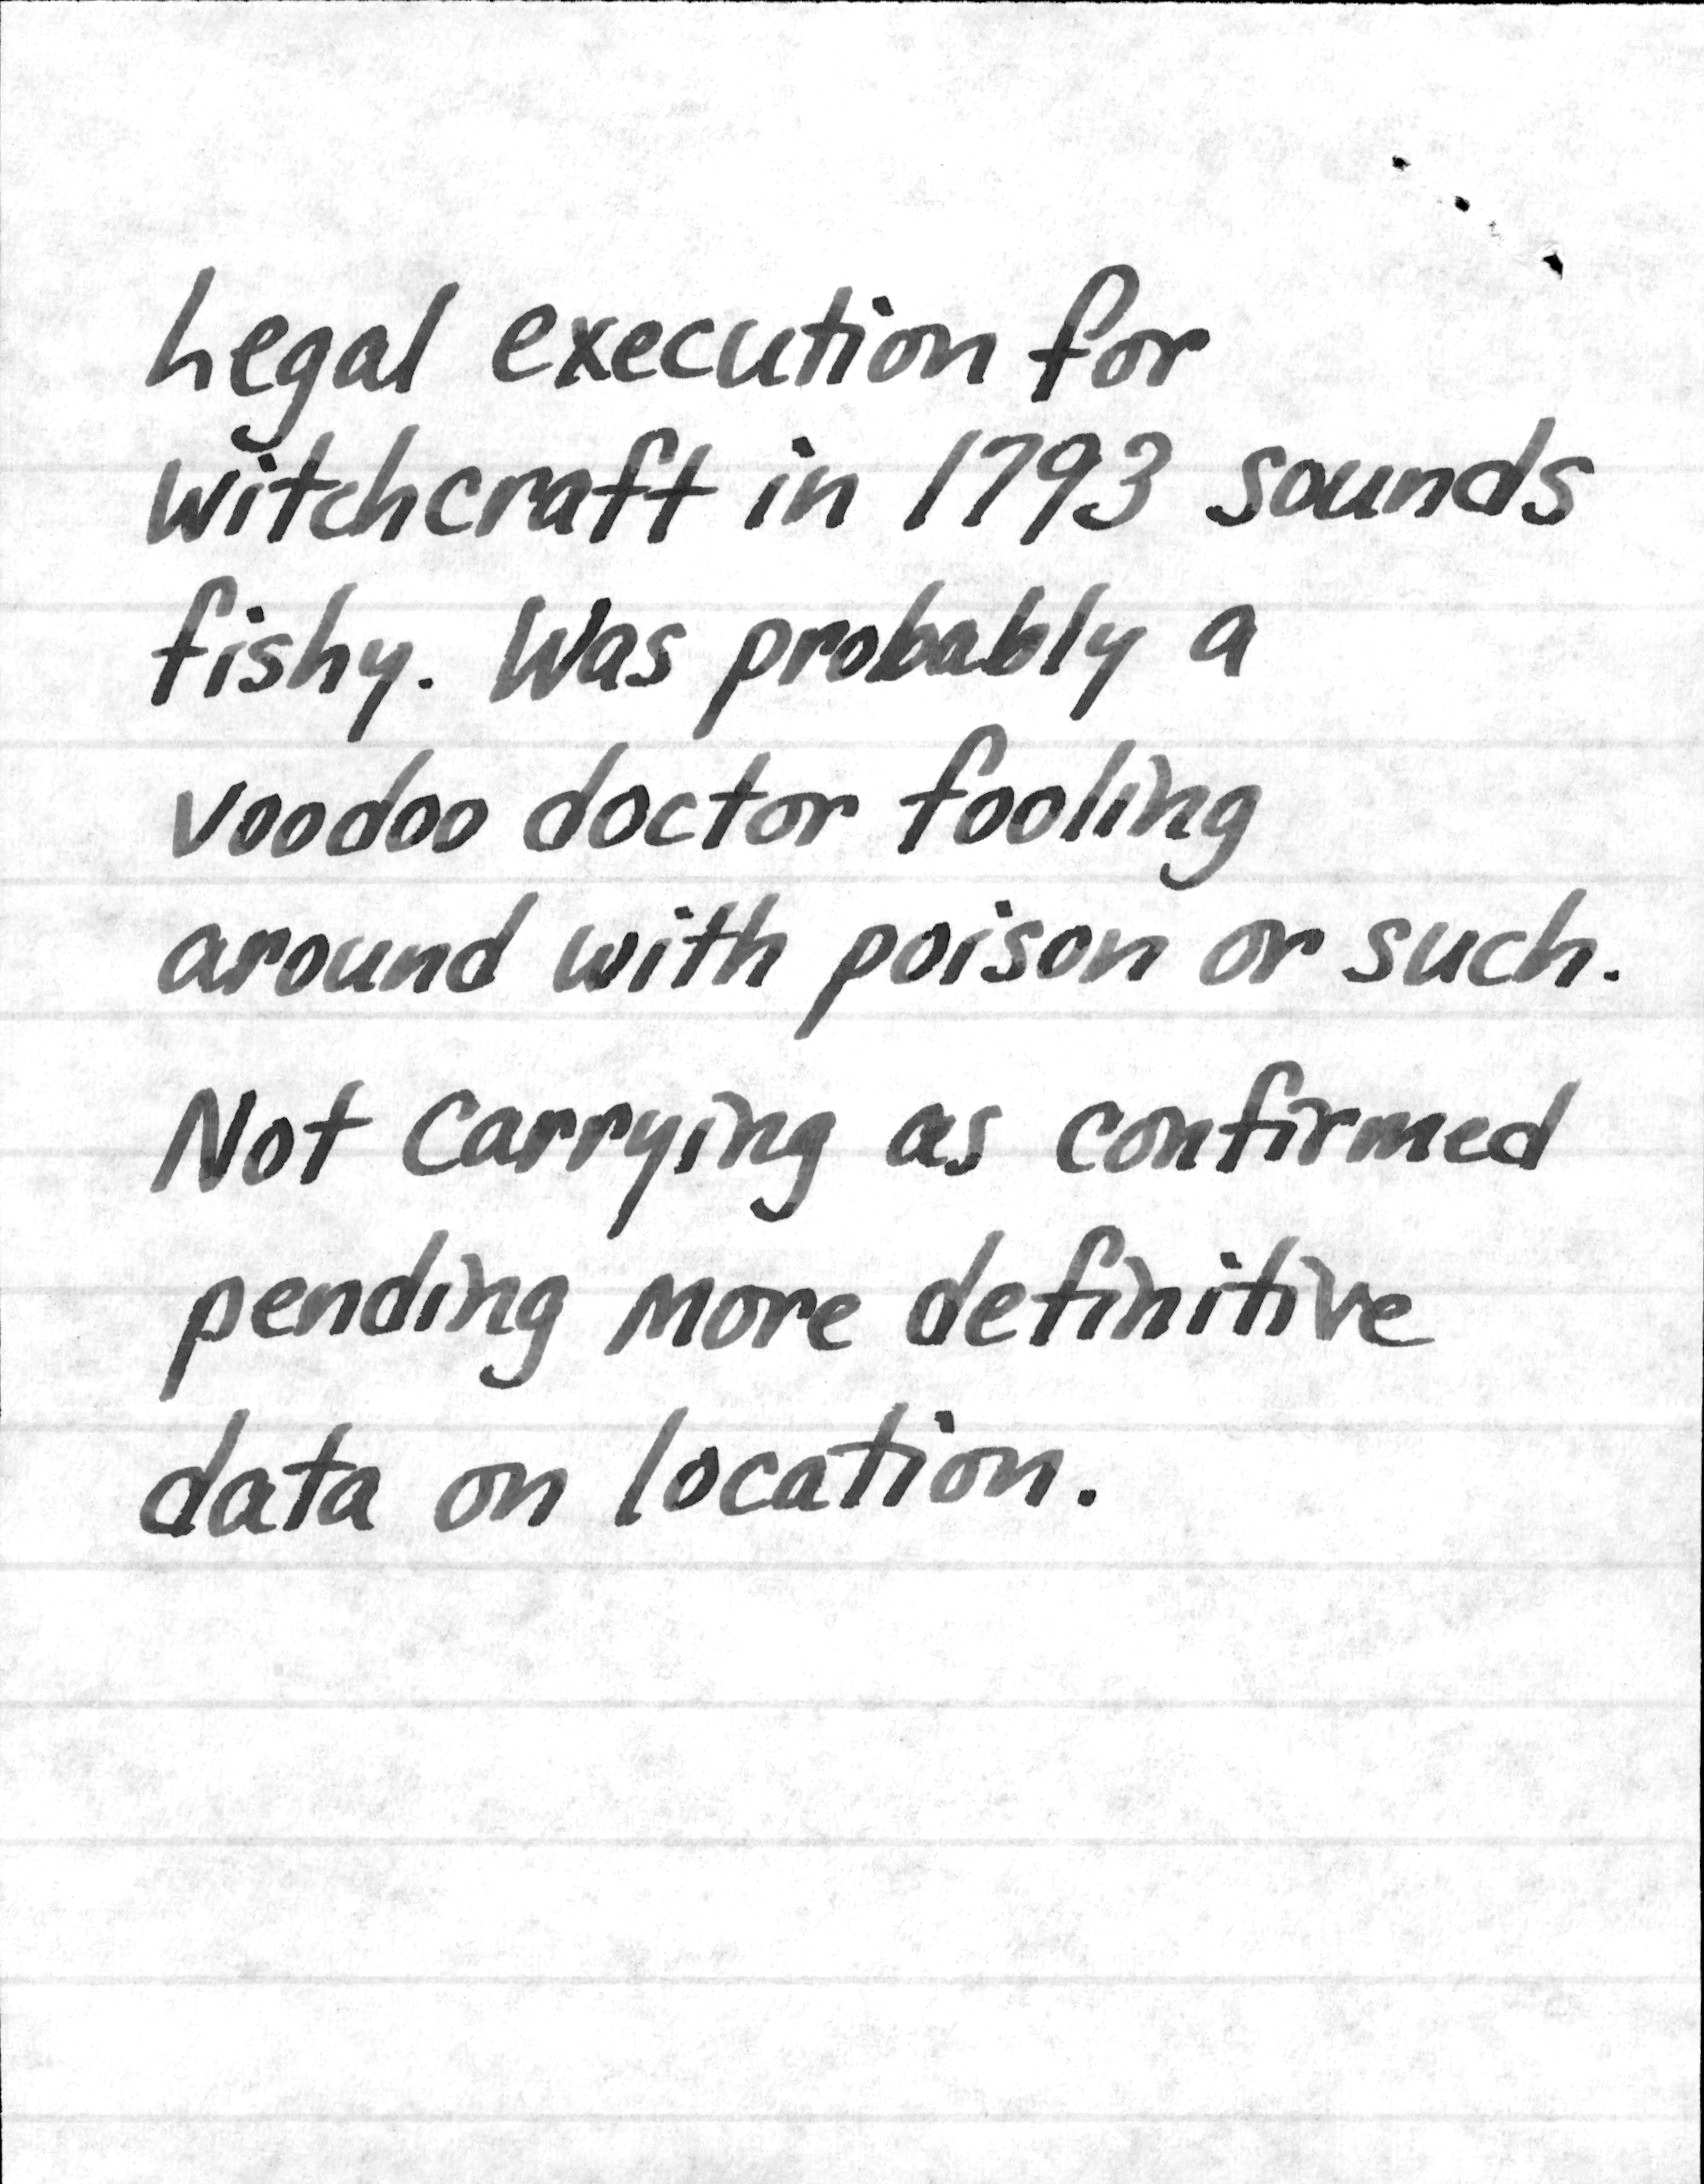 Legal execution for
witchcraft in 1793 sounds
fishy. Was probably a
voodoo doctor fooling
around with poison or such.
Not carrying as confirmed
pending more definitive
data on location.